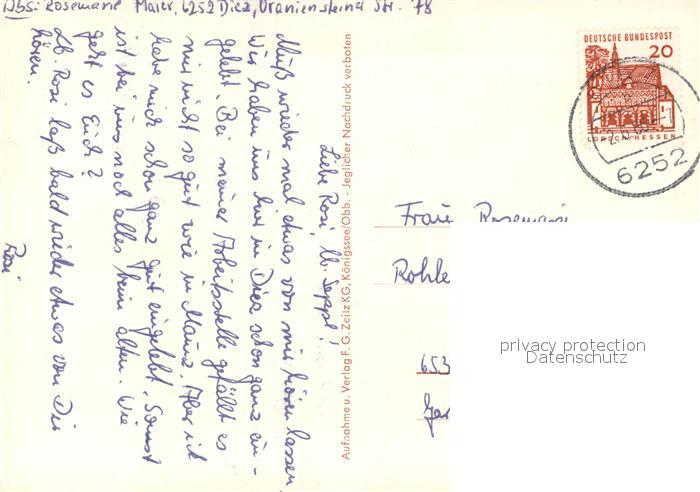 Abs: Rosemarie Maier, 6252 Diez, Oraniensteiner Str. 78
Liebe Rosi, lb. Seppl!
Muß wieder mal etwas von mir hören lassen
Wir haben uns hier in Diez schon ganz ein-
gelebt. Bei meiner Arbeitsstelle gefällt es
mir nicht so gut wie in Mainz. Aber ich
habe mich schon ganz gut eingelebt. Sonst
ist bei uns noch alles beim alten. Wie
geht es Euch?
Lb. Rosi laß bald wieder etwas von Dir
hören.
Rosi
Aufnahme u. Verlag F. G. Zeitz KG, Königssee/Obb. - Jeglicher Nachdruck verboten
DEUTSCHE BUNDESPOST
20
LORSCH/HESSEN
6252
Frau Rosemarie
653
privacy protection
Datenschutz